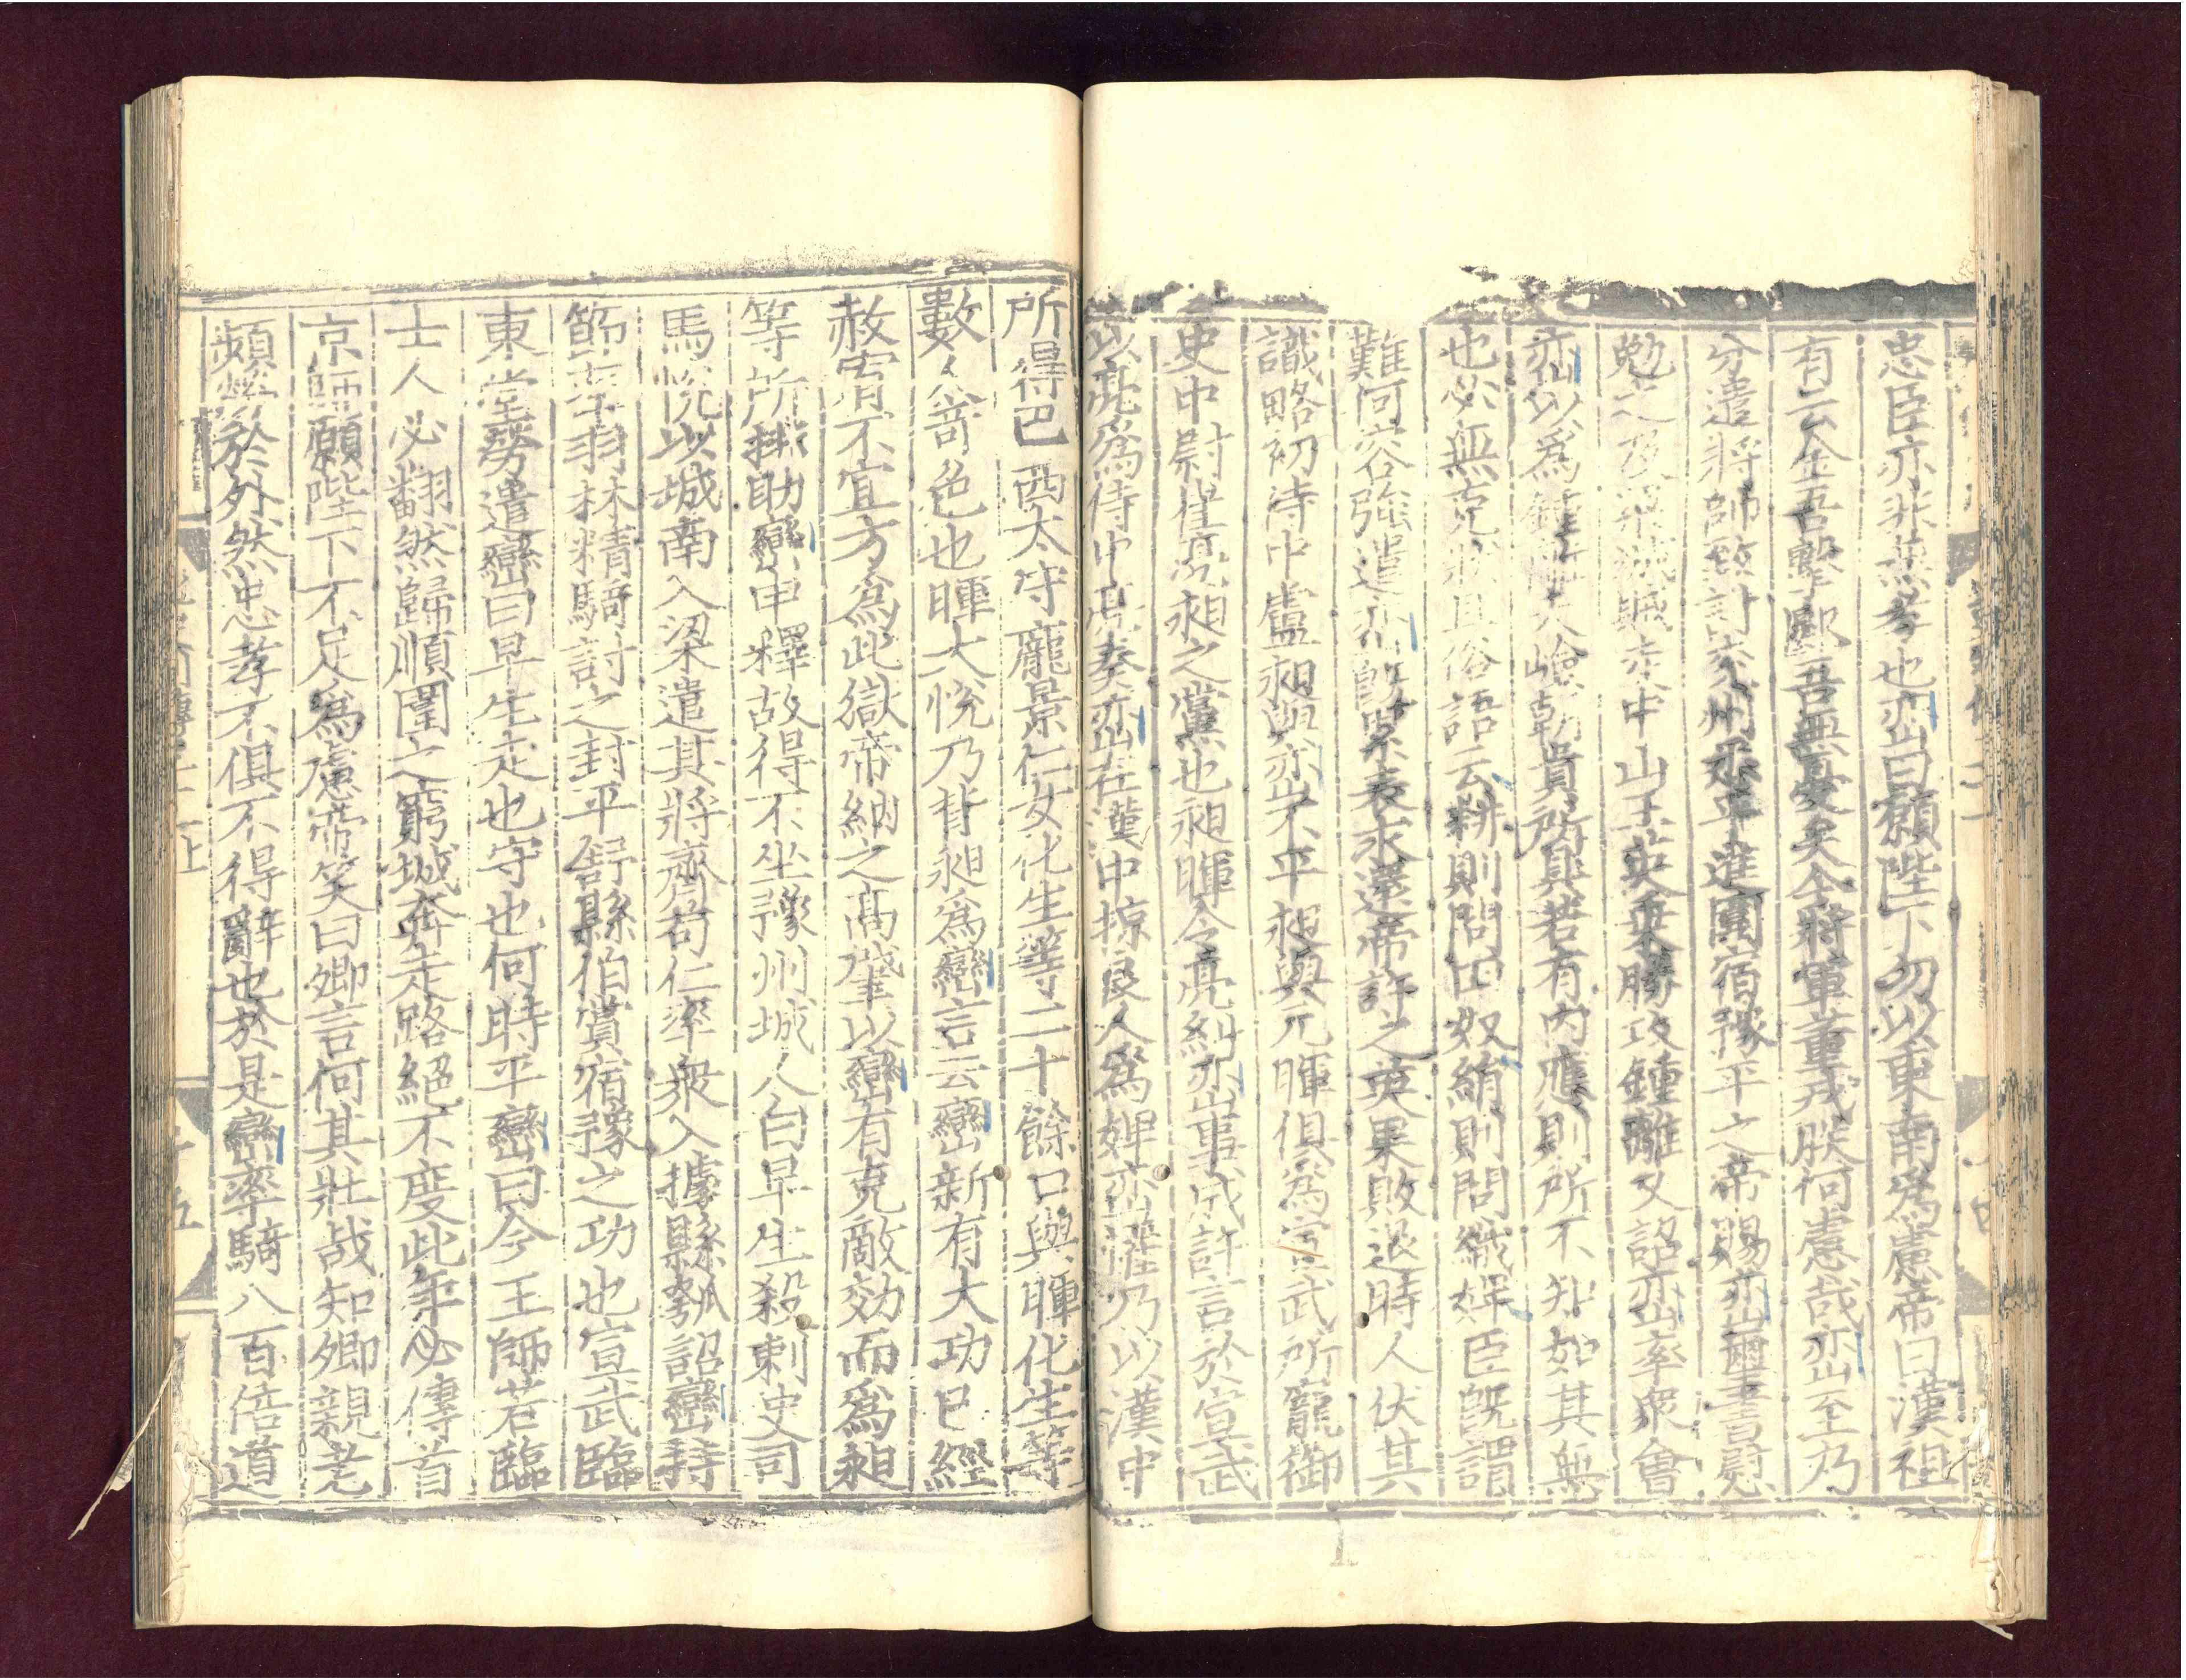 忠臣亦非燕孝也巒曰願陛下勿以東南爲慮帝曰漢祖
有云金吾擊郾吾無憂矣今將軍董戎朕何慮哉巒至乃
分遣將帥致討兗州悉平進圍宿豫平之帝賜巒璽書慰
勉之及梁城賊走中山王英乗勝攻鍾離又詔巒率衆會
巒以爲鍾離天險朝貴所具若有内應則所不知如其無
也必無克狀且俗語云耕則問田奴絹則問織婢臣既謂
難何容強遣巒既累表求還帝許之英果敗退時人伏其
識略初侍中盧昶與巒不平昶與元暉俱爲宣武所寵御
史中尉崔亮昶之黨也昶暉令亮糾巒事成許言於宣武
以亮爲侍中亮奏巒在漢中掠良人爲婢巒懼乃以漢中
所得巴西太守龐景仁女化生等二十餘口與暉化生等
數人奇色也暉大悅乃背昶爲巒言云巒新有大功已經
赦宥不宜方爲此獄帝納之高肇以巒有克敵効而爲昶
等所排助巒申釋故得不坐豫州城人白早生殺刺史司
馬悅以城南入梁遣其將齊苟仁率衆入據縣瓠詔巒持
節率羽林精騎討之封平舒縣伯賞宿豫之功也宣武臨
東堂勞遣巒曰早生走也守也何時平巒曰今王師若臨
士人必翻然歸順圍之窮城奔走路絕不度此年必傳首
京師願陛下不足爲慮帝笑曰卿言何其壯哉知卿親老
頻勞於外然忠孝不俱不得辭也於是巒率騎八百倍道